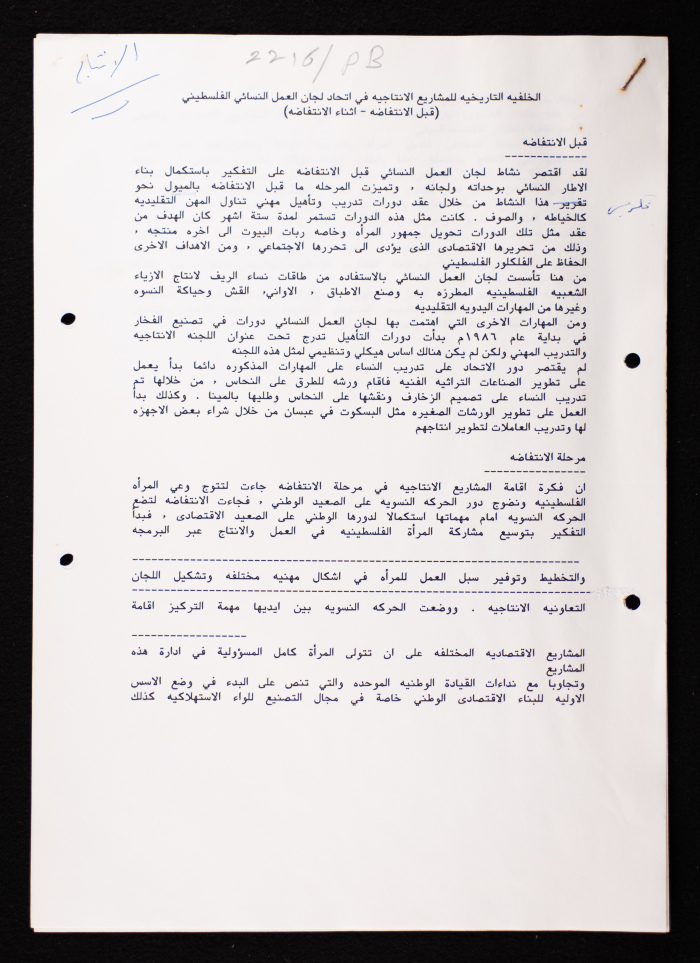 الانتاج
2216/PB
الخلفيه التاريخيه للمشاريع الانتاجيه في اتحاد لجان العمل النسائي الفلسطيني
(قبل الانتفاضه - اثناء الانتفاضه)
قبل الانتفاضه
-------------
لقد اقتصر نشاط لجان العمل النسائي قبل الانتفاضه على التفكير باستكمال بناء
الاطار النسائي بوحداته ولجانه , وتميزت المرحله ما قبل الانتفاضه بالميول نحو
تقرير هذا النشاط من خلال عقد دورات تدريب وتأهيل مهني تناول المهن التقليديه
كالخياطه , والصوف . كانت مثل هذه الدورات تستمر لمدة ستة اشهر كان الهدف من
عقد مثل تلك الدورات تحويل جمهور المرأه وخاصه ربات البيوت الى اخره منتجه ,
وذلك من تحريرها الاقتصادى الذى يؤدى الى تحررها الاجتماعي , ومن الاهداف الاخرى
الحفاظ على الفلكلور الفلسطيني
من هنا تأسست لجان العمل النسائي بالاستفاده من طاقات نساء الريف لانتاج الازياء
الشعبيه الفلسطينيه المطرزه به وصنع الاطباق , الاواني, القش وحياكة النسوه
وغيرها من المهارات اليدويه التقليديه
ومن المهارات الاخرى التي اهتمت بها لجان العمل النسائي دورات في تصنيع الفخار
في بداية عام ١٩٨٦م بدأت دورات التأهيل تدرج تحت عنوان اللجنه الانتاجيه
والتدريب المهني ولكن لم يكن هنالك اساس هيكلي وتنظيمي لمثل هذه اللجنه
لم يقتصر دور الاتحاد على تدريب النساء على المهارات المذكوره دائما بدأ يعمل
على تطوير الصناعات التراثيه الفنيه فاقام ورشه للطرق على النحاس , من خلالها تم
تدريب النساء على تصميم الزخارف ونقشها على النحاس وطليها بالمينا . وكذلك بدأ
العمل على تطوير الورشات الصغيره مثل البسكوت في عبسان من خلال شراء بعض الاجهزه
لها وتدريب العاملات لتطوير انتاجهم
مرحلة الانتفاضه
----------------
ان فكرة اقامة المشاريع الانتاجيه في مرحلة الانتفاضه جاءت لتتوج وعي المرأه
الفلسطينيه ونضوج دور الحركه النسويه على الصعيد الوطني , فجاءت الانتفاضه لتضع
الحركه النسويه امام مهماتها استكمالا لدورها الوطني على الصعيد الاقتصادى , فبدأ
التفكير بتوسيع مشاركة المرأة الفلسطينيه في العمل والانتاج عبر البرمجه
والتخطيط وتوفير سبل العمل للمرأه في اشكال مهنيه مختلفه وتشكيل اللجان
التعاونيه الانتاجيه . ووضعت الحركه النسويه بين ايديها مهمة التركيز اقامة
المشاريع الاقتصاديه المختلفه على ان تتولى المرأة كامل المسؤولية في ادارة هذه
المشاريع
وتجاوبا مع نداءات القيادة الوطنيه الموحده والتي تنص على البدء في وضع الاسس
الاوليه للبناء الاقتصادى الوطني خاصة في مجال التصنيع للواء الاستهلاكيه كذلك